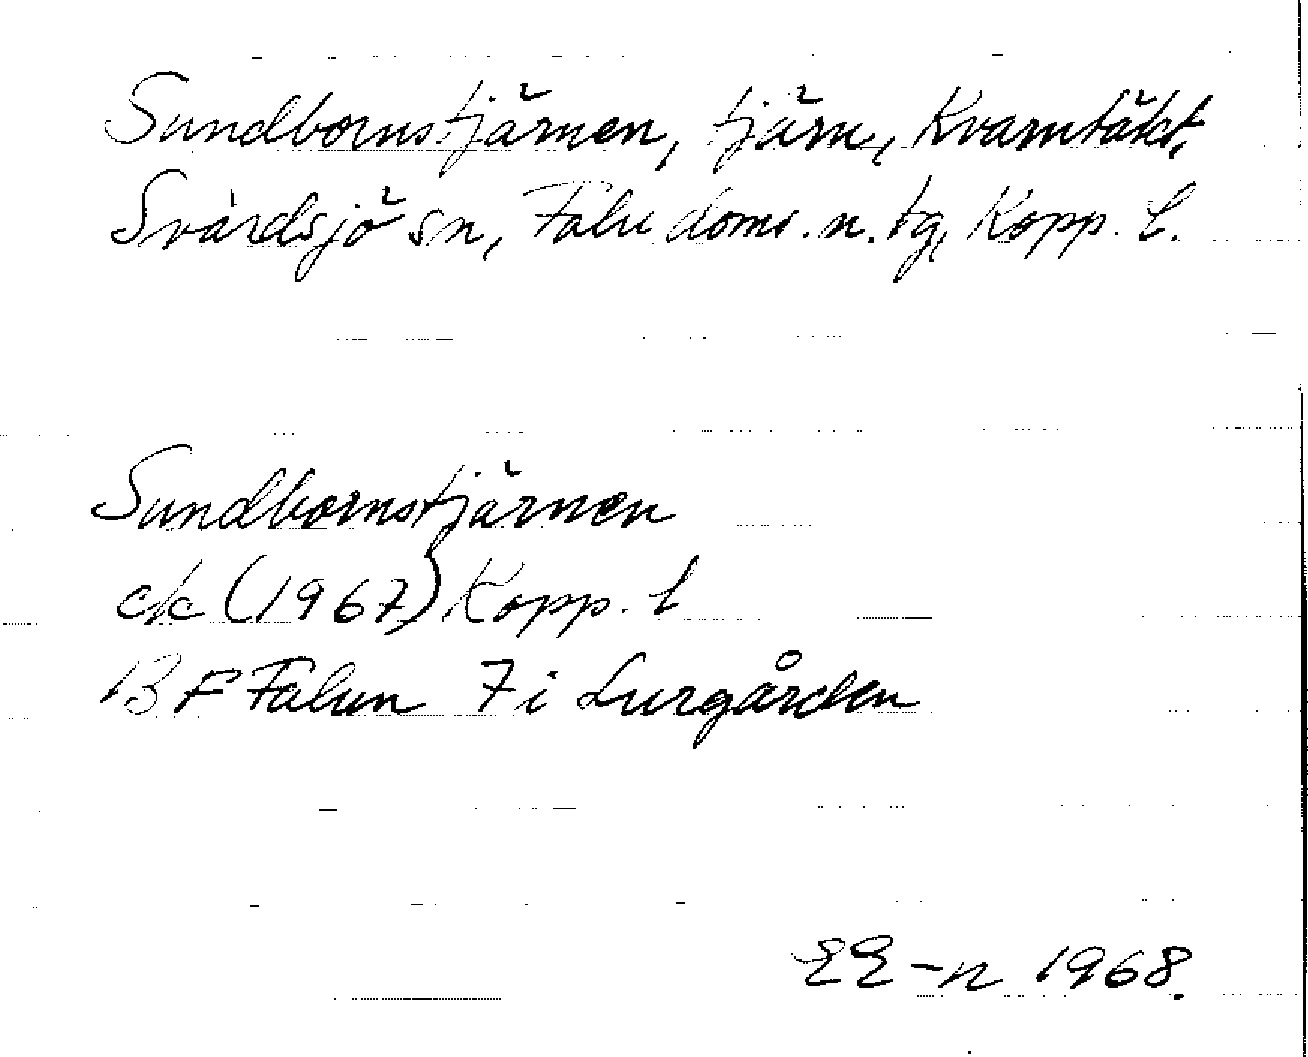 Sundbornstjärnen, tjärn, Kvarntäkt,
Svärdsjö sn, Falu doms. n. tg, Kopp. l.
Sundbornstjärnen
ek (1967) Kopp. l
13 F Falun 7 i Lurgården
EE-n 1968.